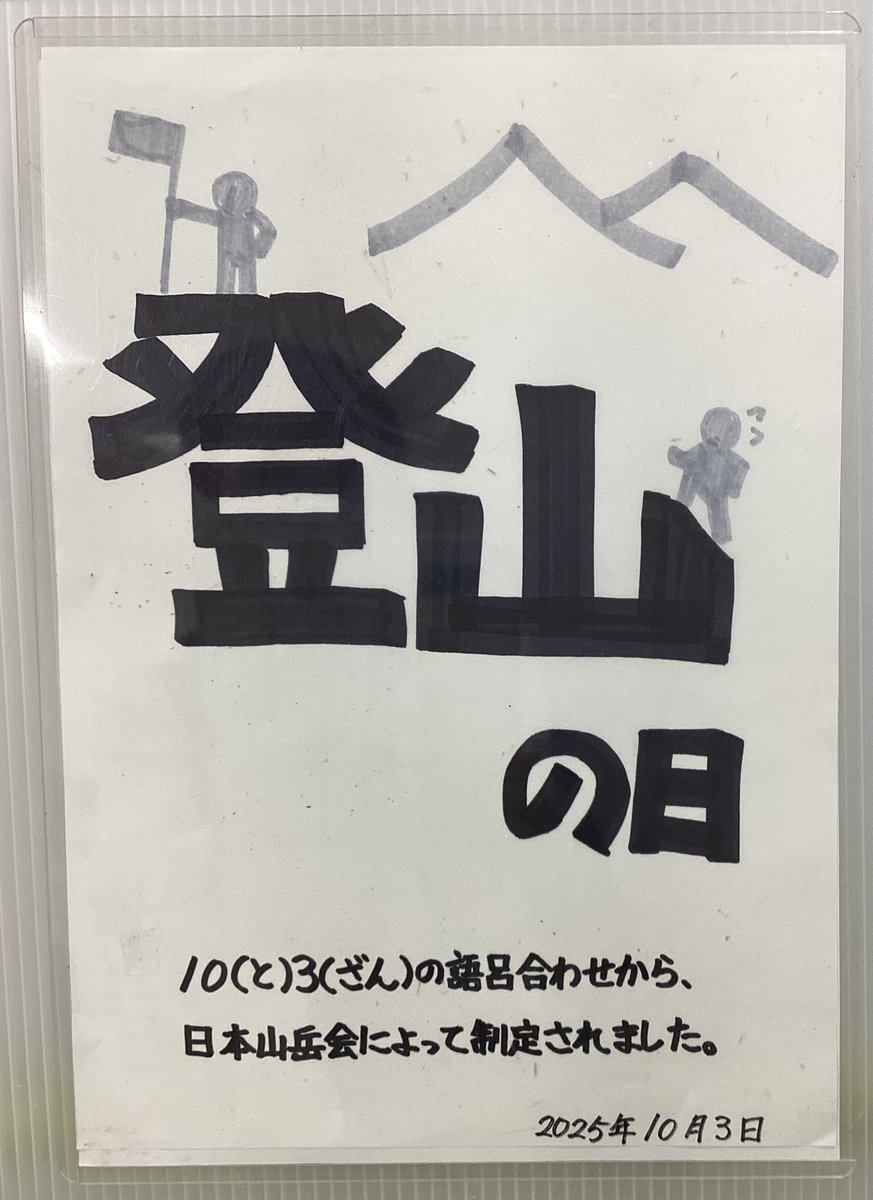 登山
の日
10(と)3(ざん)の語呂合わせから、
日本山岳会によって制定されました。
2025年10月3日